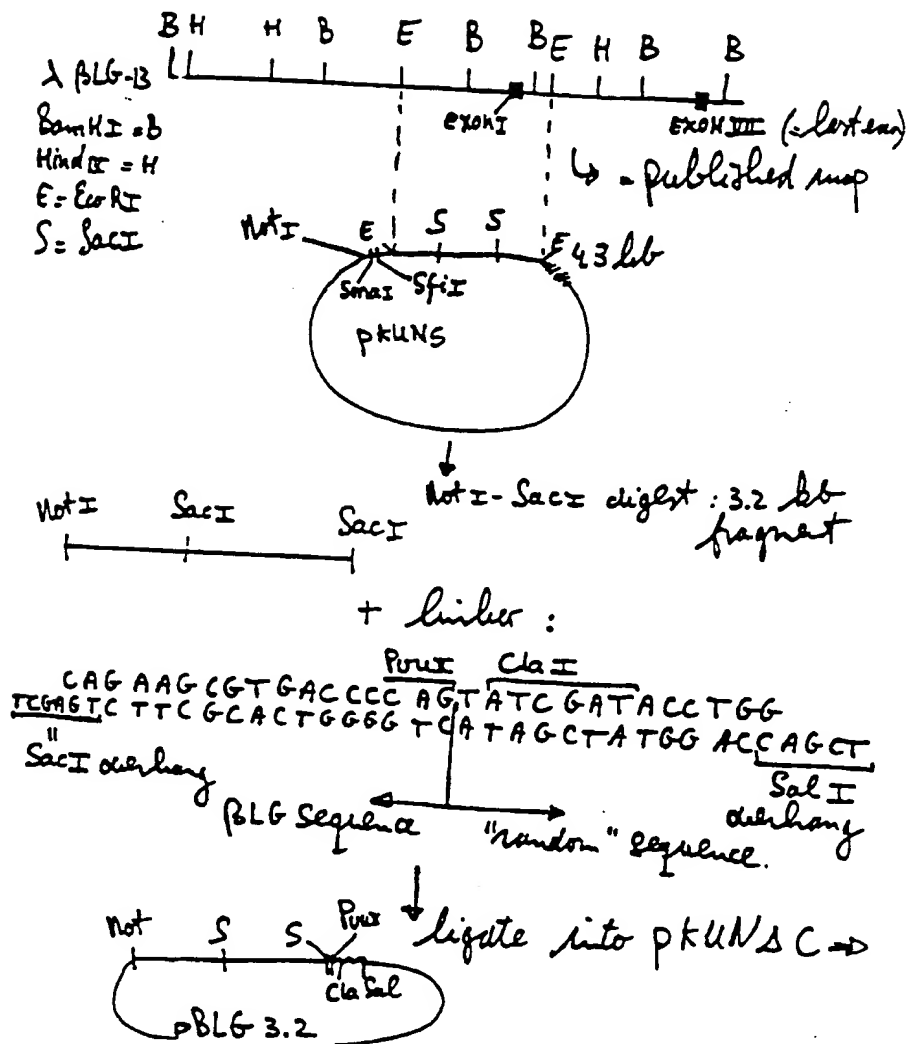 B H H B E B B E H B B
λ βLG-13
BamHI = B
HindIII = H
E = EcoRI
S = SacI
exon I
EXON VII (= last exon)
↳ = published map
NotI E S S E 4.3 kb
SmaI SfiI
pKUNS
NotI-SacI digest : 3.2 kb
fragment
NotI SacI SacI
+ linker :
PvuII ClaI
CAG AAG CGT GACCCC AGT ATC GATACC TGG
TCGAGTC TTC GCACTGGGG TCA TAGCTATGG ACC CAGCT
"
SacI overhang
Sal I
overhang
βLG sequence
"random" sequence.
ligate into pKUN Δ C ⇒
Not S S PvuII
Cla Sal
pBLG 3.2